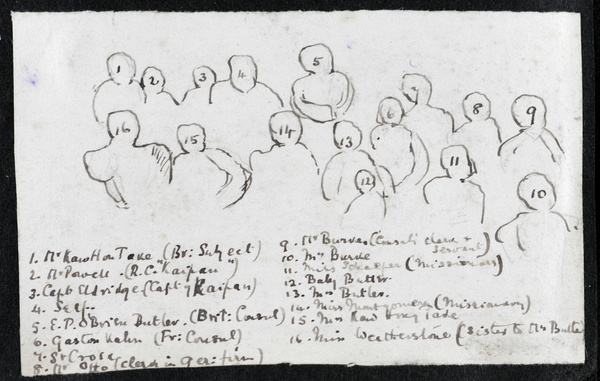 1 2 3 4 5
6 7 8 9
16 15 14 13 12 11 10
1. Mr Kaw Hon Take (Br: Subject)
2. Mr Powell. (R.C. "Kaipan")
3. Capt Eldridge (Capt of Kaipan)
4. Self.
5. E.P. O'Brien Butler. (Brit: Consul)
6. Gaston Kahn (Fr: Consul)
7. St Croix
8. Mr Otto (clerk in Ger: firm)
9. Mr (Consul's clerk &
Servant)
10. Mrs Burke
11. Miss Schaeffer (Missionary)
12. Baby Butler
13. Mrs Butler.
14. Miss Montgomery (Missionary)
15. Mrs Kaw Hong Take
16. Miss Weatherstone (Sister to Mrs Butler